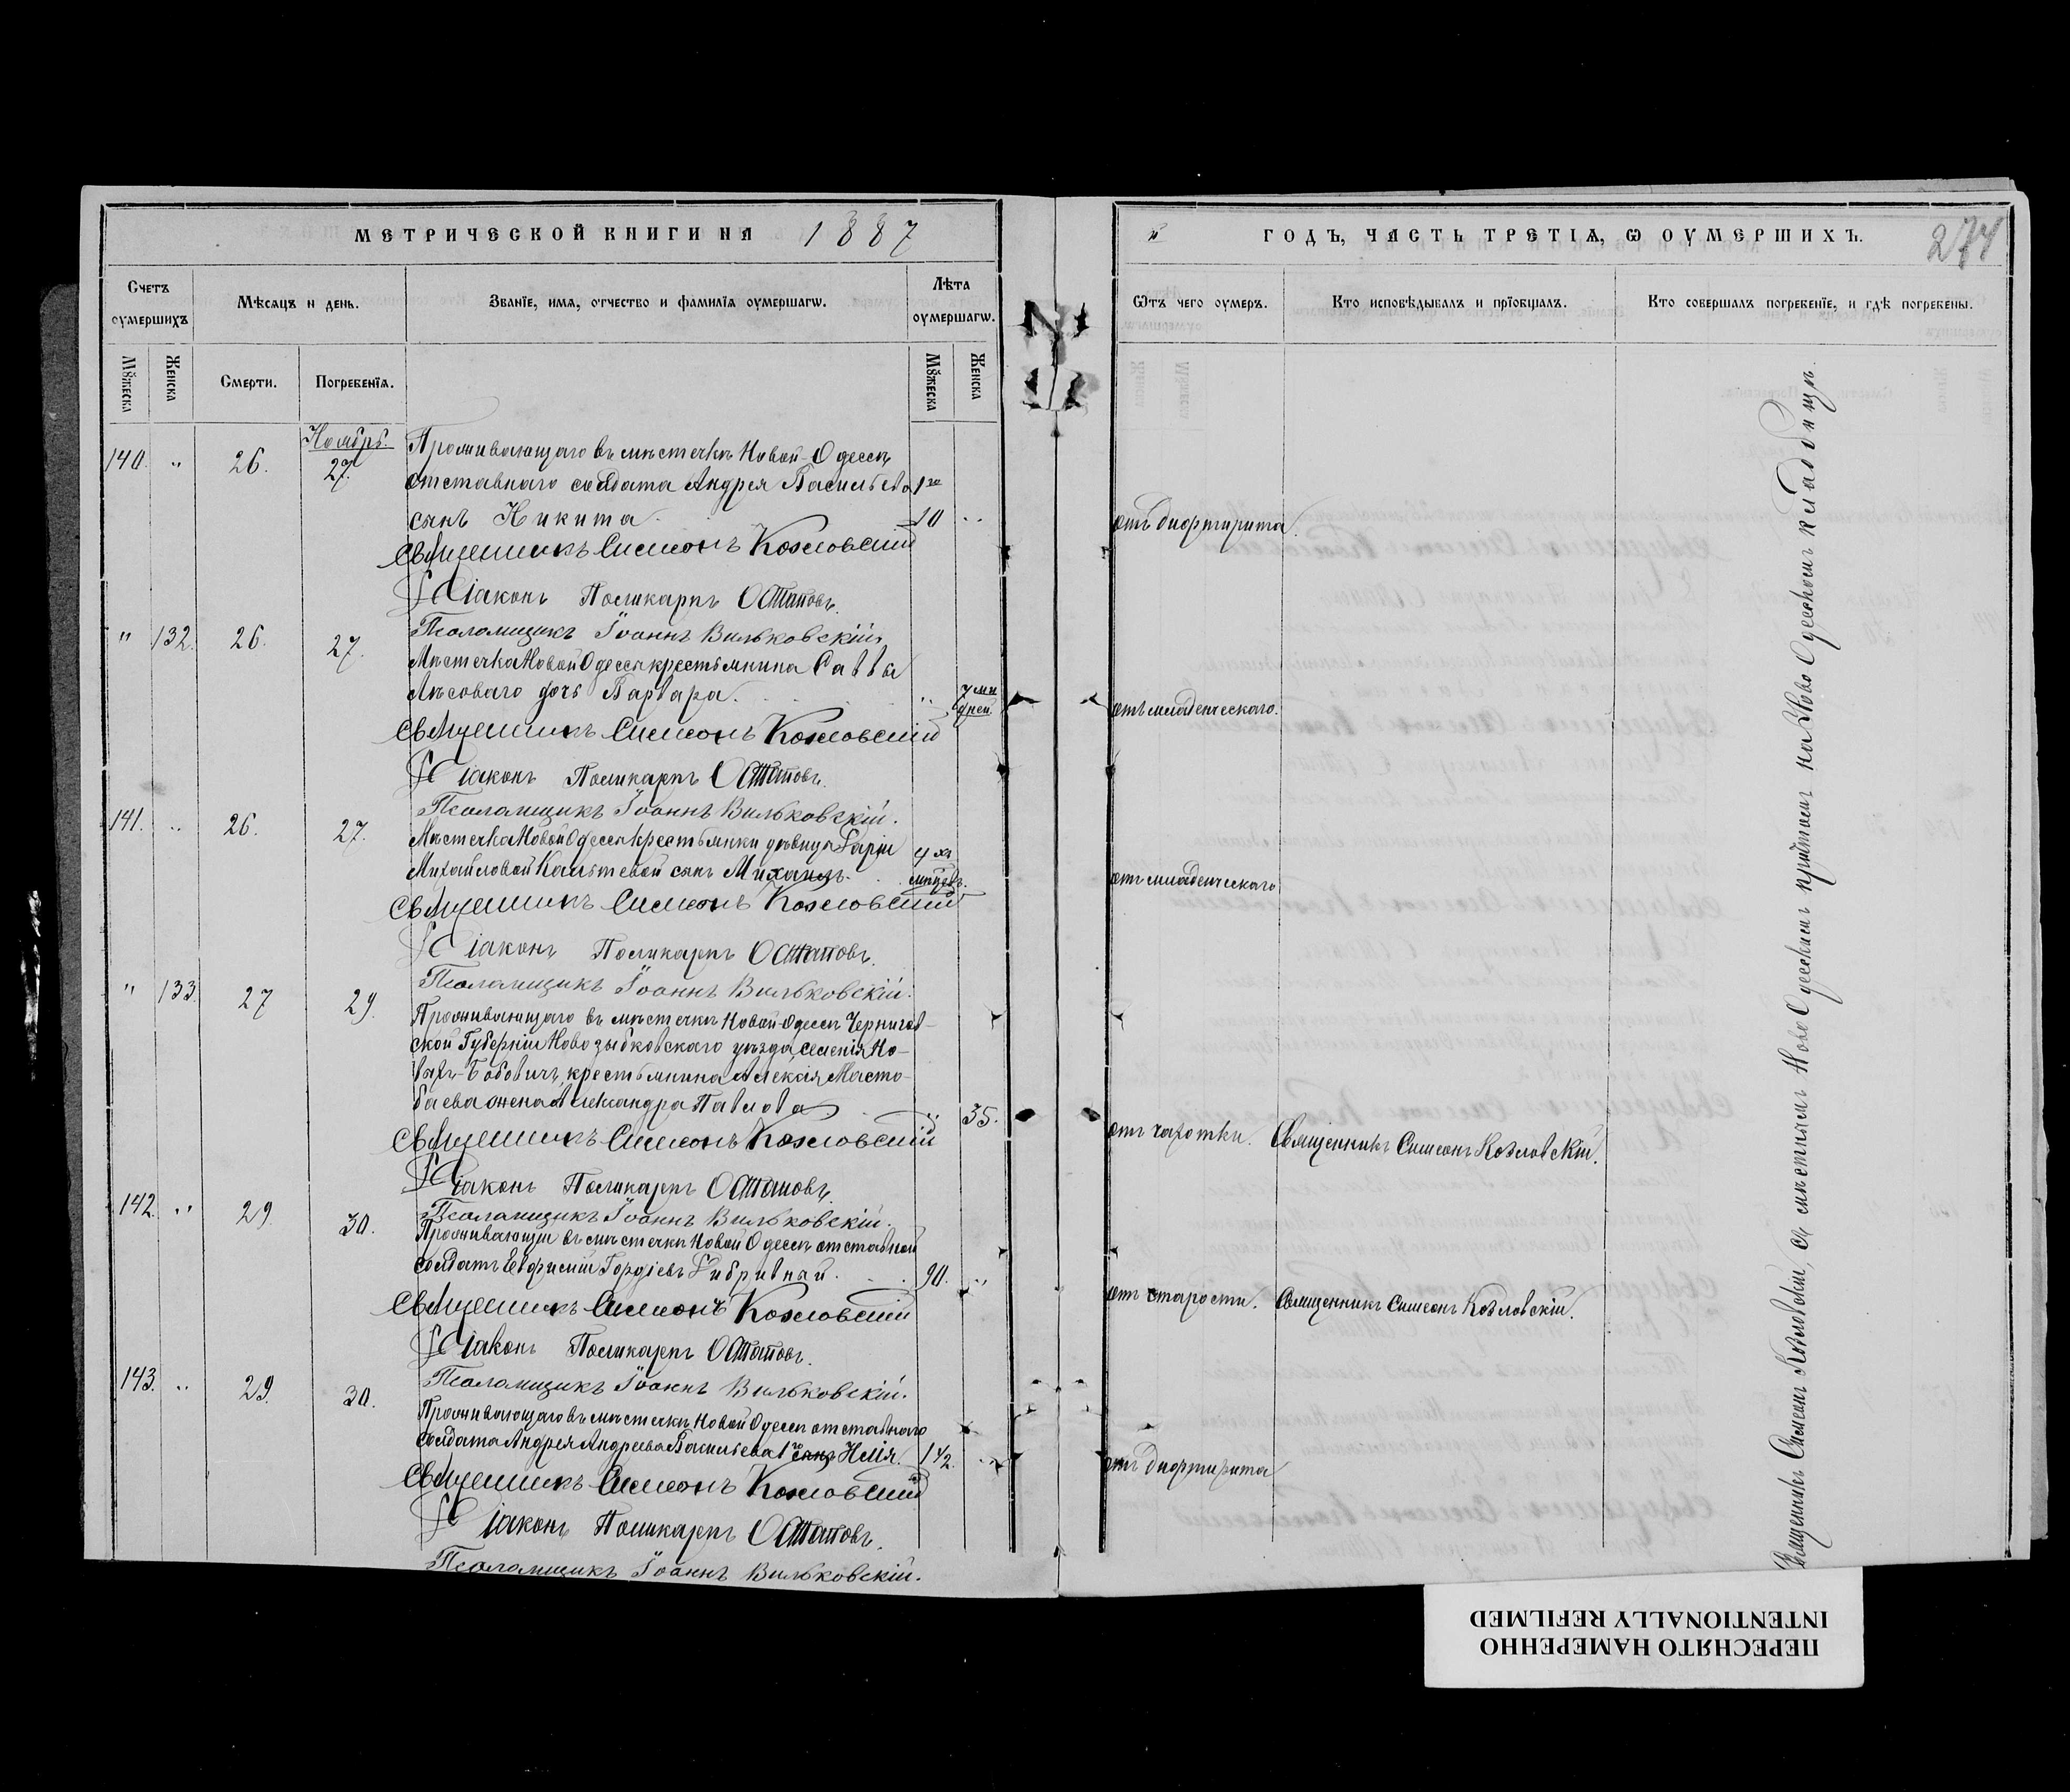 МЕТРИЧЕСКОЙ КНИГИ НА 1887
Счетъ оумершихъ
Мѣсяцъ и день.
Званїе, имѧ, отчество и фамилїѧ оумершагѡ.
Лѣта оумершагѡ.
Мꙋжеска
Женска
Смерти.
Погребенїѧ.
Мꙋжеска
Женска
Ноябрь.
140. " 26. 27.
Проживающаго въ мѣстечкѣ Новой-Одессѣ
отставнаго солдата Андрея Васильева
сынъ Никита. 10 "
Священникъ Симеонъ Козловскій
Діаконъ Поликарпъ Остаповъ.
Псаломщикъ Іоаннъ Вильковскій.
" 132. 26. 27.
Мѣстечка Новой Одессы крестьянина Саввы
Лѣсоваго дочь Варвара. " 7 ми дней.
Священникъ Симеонъ Козловскій
Діаконъ Поликарпъ Остаповъ.
Псаломщикъ Іоаннъ Вильковскій.
141. " 26. 27.
Мѣстечка Новой Одессы крестьянки дѣвицы Дарьи
Михайловой сынъ Михаилъ. 4 хъ мѣсяцевъ.
Священникъ Симеонъ Козловскій
Діаконъ Поликарпъ Остаповъ.
Псаломщикъ Іоаннъ Вильковскій.
" 133. 27 29.
Проживающаго въ мѣстечкѣ Новой-Одессѣ Чернигов-
ской Губерніи Новозыбковскаго уѣзда, селенія Но-
выхъ-Бобовичъ, крестьянина Алексія Масто-
баева жена Александра Павлова. " 35.
Священникъ Симеонъ Козловскій
Діаконъ Поликарпъ Остаповъ.
Псаломщикъ Іоаннъ Вильковскій.
142. " 29. 30.
Проживающій въ мѣстечкѣ Новой Одессѣ отставной
солдатъ Евфимій Гордіевъ. 90. "
Священникъ Симеонъ Козловскій
Діаконъ Поликарпъ Остаповъ.
Псаломщикъ Іоаннъ Вильковскій.
143. " 29. 30.
Проживающаго въ мѣстечкѣ Новой Одессѣ отставнаго
солдата Андрея Андреева Васильева сынъ Илія. 1 1/2. "
Священникъ Симеонъ Козловскій
Діаконъ Поликарпъ Остаповъ.
Псаломщикъ Іоаннъ Вильковскій.
й ГОДЪ, ЧАСТЬ ТРЕТІѦ, Ѡ ОУМЕРШИХЪ.
274
Ѿтъ чего оумеръ.
Кто исповѣдывалъ и прїобщалъ.
Кто совершалъ погребенїе, и гдѣ погребены.
отъ дифтирита.
отъ младенческаго.
отъ младенческаго
отъ чахотки. Священникъ Симеонъ Козловскій.
отъ старости. Священникъ Симеонъ Козловскій.
отъ дифтирита
Священникъ Симеонъ Козловскій, съ мѣстнымъ Ново Одесскимъ причтомъ на Ново Одесскомъ кладбищѣ.
ПЕРЕСНЯТО НАМЕРЕННО
INTENTIONALLY REFILMED